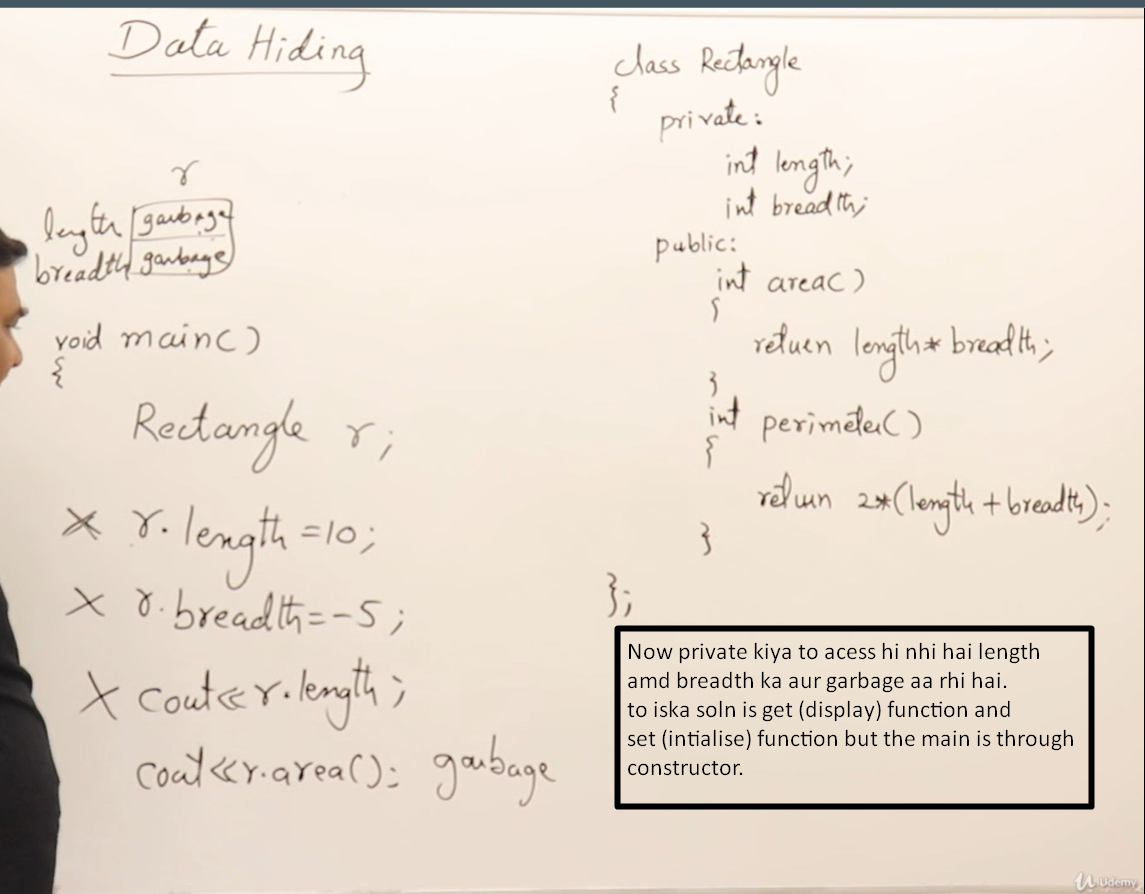 Data Hiding
r
length garbage
breadth garbage
void main()
{
Rectangle r;
X r.length=10;
X r.breadth=-5;
X cout<<r.length;
cout<<r.area(); garbage
class Rectangle
{
private:
int length;
int breadth;
public:
int area()
{
return length*breadth;
}
int perimeter()
{
return 2*(length+breadth);
}
};
Now private kiya to acess hi nhi hai length
amd breadth ka aur garbage aa rhi hai.
to iska soln is get (display) function and
set (intialise) function but the main is through
constructor.
Udemy